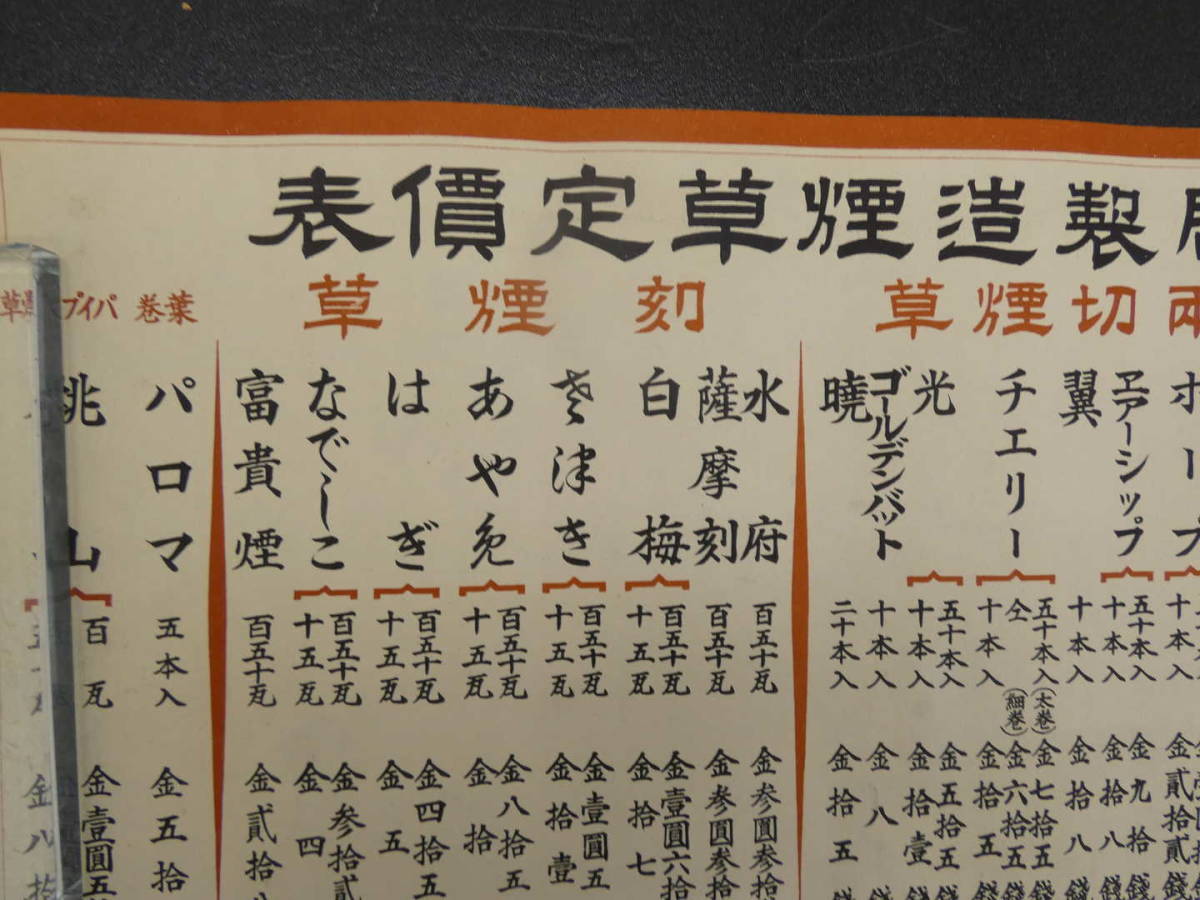 製造煙草定價表
兩切煙草
ホープ
十本入 金貳拾貳錢
ヱアーシップ
五十本入 金九拾錢
十本入 金拾八錢
翼
十本入 金拾八錢
チエリー
五十本入(太巻) 金七拾五錢
仝(細巻) 金六拾五錢
十本入 金拾五錢
光
五十本入 金五拾五錢
十本入 金拾壹錢
ゴールデンバット
十本入 金八錢
曉
二十本入 金拾五錢
刻煙草
水府
百五十瓦 金参圓参拾
薩摩刻
百五十瓦 金参圓参拾
白梅
百五十瓦 金壹圓六拾
十五瓦 金拾七
さ津き
百五十瓦 金壹圓五
十五瓦 金拾壹
あや免
百五十瓦 金八拾五
十五瓦 金拾
はぎ
百五十瓦 金四拾五
十五瓦 金五
なでしこ
百五十瓦 金参拾貳
十五瓦 金四
富貴煙
百五十瓦 金貳拾
葉巻
パロマ
五本入 金五拾
パイプ 草
桃山
百瓦 金壹圓五
金八拾